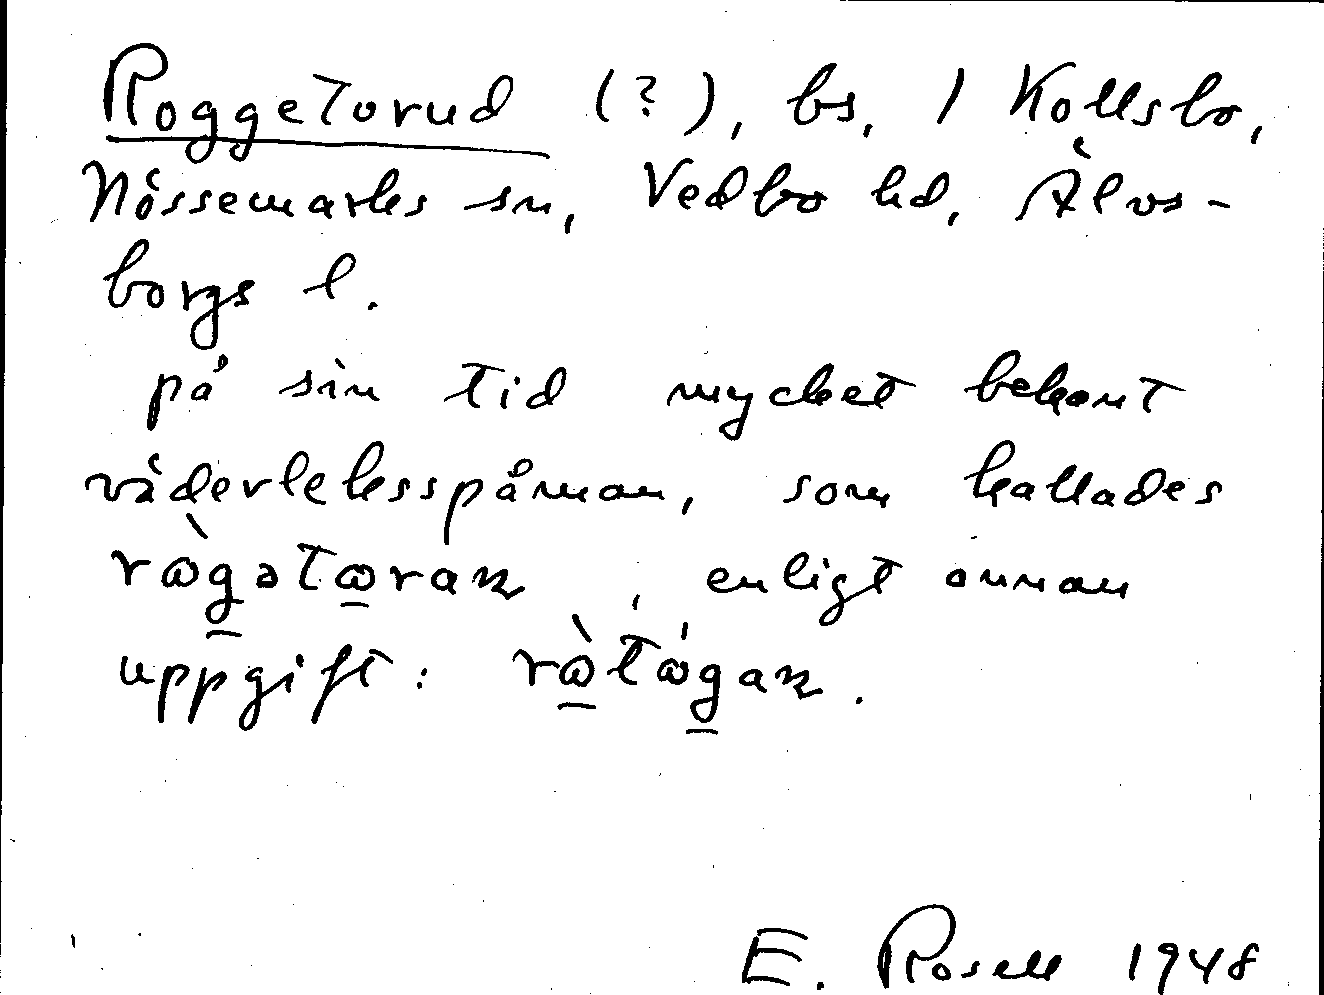 Roggetorud (?), bs, i Kollsbo,
Nössemarks sn, Vedbo hd, Älvs-
borgs l.
på sin tid mycket bekant
väderleksspåman, som kallades
rɷ̀gətɷran, enligt annan
uppgift: rɷ̀tɷ́gan.
E. Rosell 1948